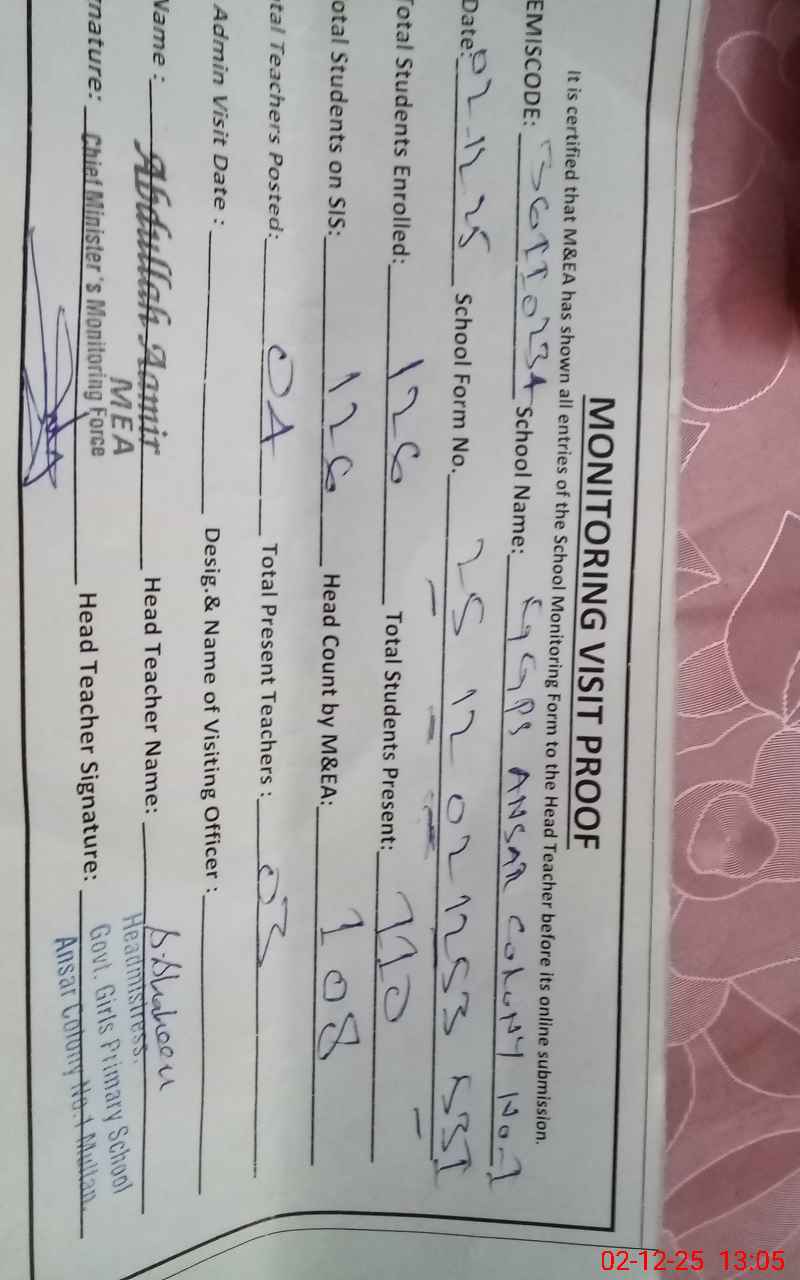 MONITORING VISIT PROOF
It is certified that M&EA has shown all entries of the School Monitoring Form to the Head Teacher before its online submission.
EMISCODE: School Name: GGPS ANSAR COLONY No-1
Date: 02.12.25 School Form No.
Total Students Enrolled: 126 Total Students Present: 110
otal Students on SIS: 126 Head Count by M&EA: 108
tal Teachers Posted: 04 Total Present Teachers : 03
Admin Visit Date : Desig.& Name of Visiting Officer :
Name : Abdullah Aamir Head Teacher Name: S.Shaheen
MEA Headmistress.
nature: Chief Minister's Monitoring Force Head Teacher Signature: Govt. Girls Primary School
Ansar Colony No.1 Multan.
02-12-25 13:05